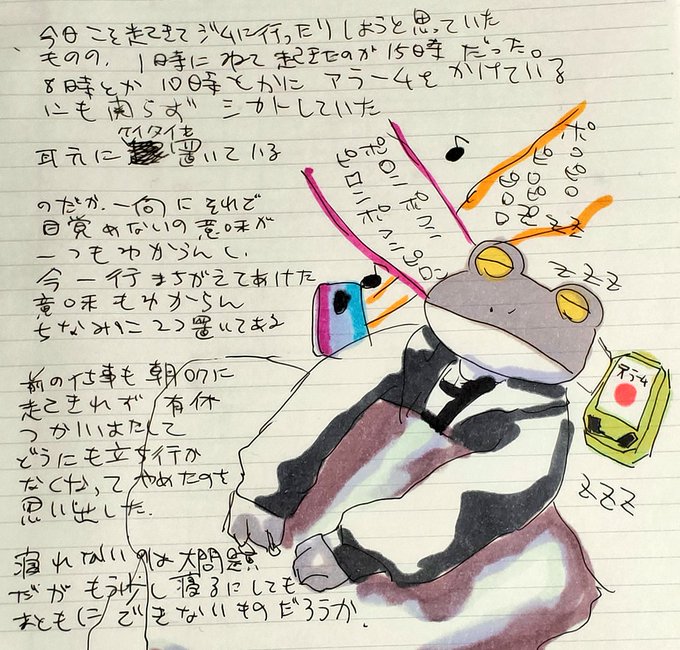 今日こそ起きてジムに行ったりしようと思っていた
ものの、1時にねて起きたのが15時だった。
8時とか10時とかにアラームをかけている
にも関らずシカトしていた
ケイタイを
耳元に置いている
のだが、一向にそれで
目覚めないの意味が
一つもわからんし、
今一行まちがえてあけた
意味もわからん
ちなみに2つ置いてある
前の仕事も朝07に
起きれず有休
つかいはたして
どうにも立ち行か
なくなってやめたのを
思い出した.
寝れないのは大問題
だがもう少し寝るにしても
まともにできないものだろうか.
ポロンポロンポロン
ポロンポロン
ZZZ
ZZZ
アラーム
ZZZ